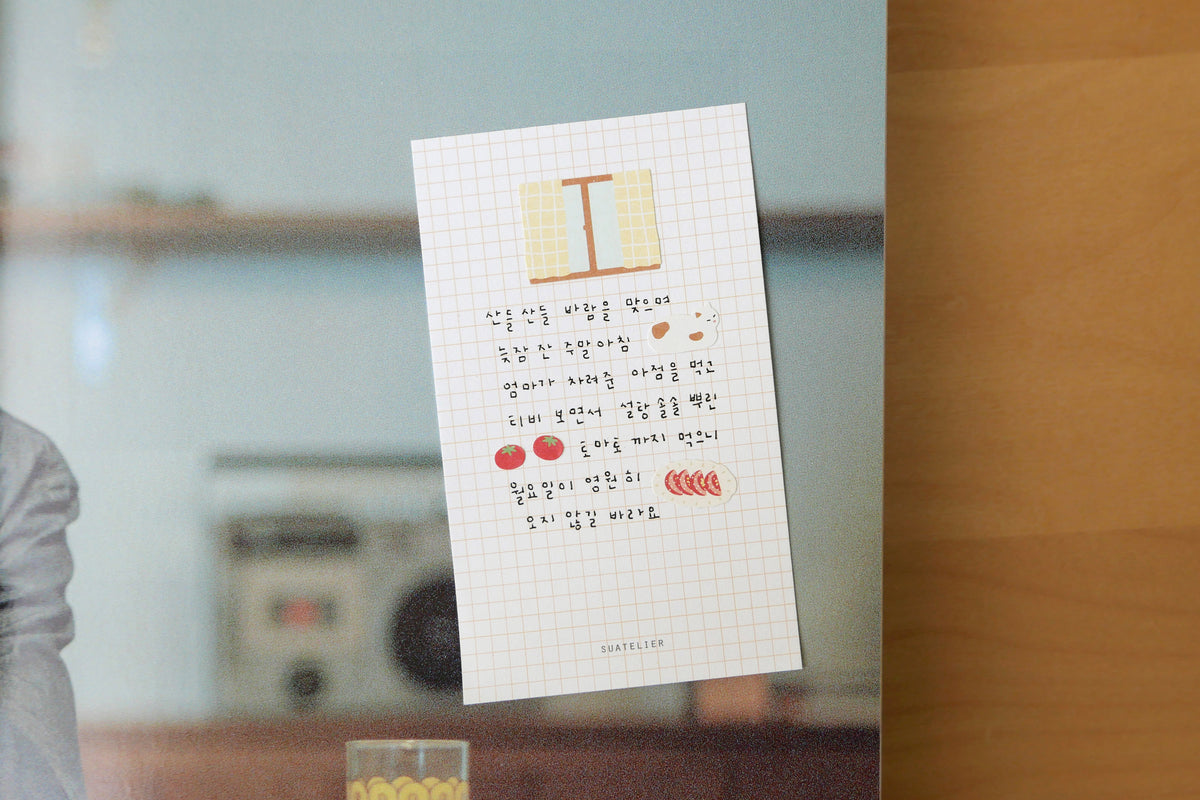 산들산들 바람을 맞으며
늦잠 잔 주말아침
엄마가 차려준 아점을 먹고
티비 보면서 설탕 솔솔 뿌린
토마토 까지 먹으니
월요일이 영원히
오지 않길 바라요
SUATELIER